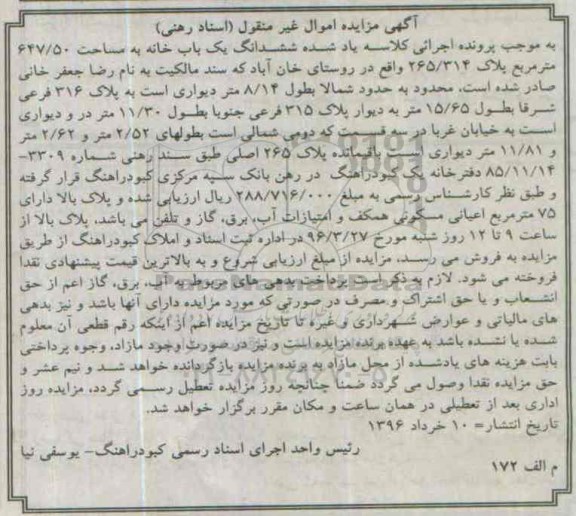 آگهی مزایده اموال غیر منقول (اسناد رهنی)
به موجب پرونده اجرائی کلاسه یاد شده ششدانگ یک باب خانه به مساحت ۶۴۷/۵۰
مترمربع پلاک ۲۶۵/۳۱۴ واقع در روستای خان آباد که سند مالکیت به نام رضا جعفر خانی
صادر شده است، محدود به حدود شمالا بطول ۸/۱۴ متر دیواری است به پلاک ۳۱۶ فرعی
شرقا بطول ۱۵/۶۵ متر به دیوار پلاک ۳۱۵ فرعی جنوبا بطول ۱۱/۳۰ متر در و دیواری
است به خیابان غربا در سه قسمت که دومی شمالی است بطولهای ۲/۵۲ متر و ۲/۶۲ متر
و ۱۱/۸۱ متر دیواری است باقیمانده پلاک ۲۶۵ اصلی طبق سند رهنی شماره ۳۳۰۹-
۸۵/۱۱/۱۴ دفترخانه یک کبودراهنگ در رهن بانک سپه مرکزی کبودراهنگ قرار گرفته
و طبق نظر کارشناس رسمی به مبلغ ۲۸۸/۷۱۶/۰۰۰ ریال ارزیابی شده و پلاک بالا دارای
۷۵ مترمربع اعیانی مسکونی همکف و امتیازات آب، برق، گاز و تلفن می باشد، پلاک بالا از
ساعت ۹ تا ۱۲ روز شنبه مورخ ۹۶/۳/۲۷ در اداره ثبت اسناد و املاک کبودراهنگ از طریق
مزایده به فروش می رسد، مزایده از مبلغ ارزیابی شروع و به بالاترین قیمت پیشنهادی نقدا
فروخته می شود. لازم به ذکر است پرداخت بدهی های مربوط به آب، برق، گاز اعم از حق
انشعاب و یا حق اشتراک و مصرف در صورتی که مورد مزایده دارای آنها باشد و نیز بدهی
های مالیاتی و عوارض شهرداری و غیره تا تاریخ مزایده اعم از اینکه رقم قطعی آن معلوم
شده یا نشده باشد به عهده برنده مزایده است و نیز در صورت وجود مازاد، وجوه پرداختی
بابت هزینه های یادشده از محل مازاد به برنده مزایده بازگردانده خواهد شد و نیم عشر و
حق مزایده نقدا وصول می گردد ضمناً چنانچه روز مزایده تعطیل رسمی گردد، مزایده روز
اداری بعد از تعطیلی در همان ساعت و مکان مقرر برگزار خواهد شد.
تاریخ انتشار= ۱۰ خرداد ۱۳۹۶
رئیس واحد اجرای اسناد رسمی کبودراهنگ- یوسفی نیا
م الف ۱۷۲